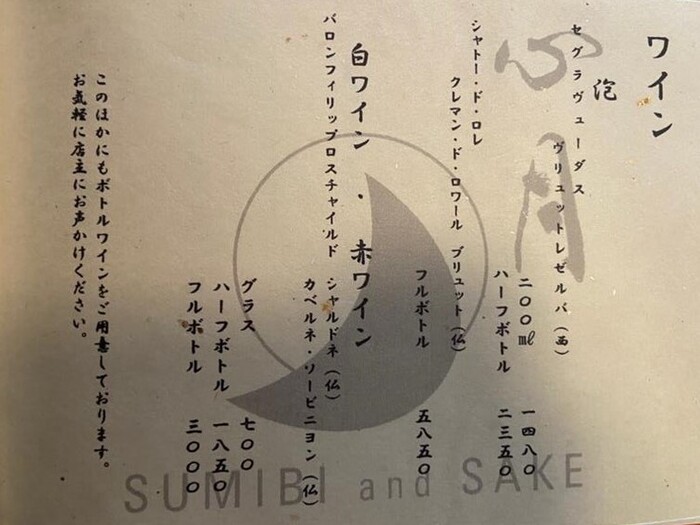 ワイン
泡
セグラヴューダス
ヴリュットレゼルバ（西）
二〇〇㎖　一四八〇
ハーフボトル　二三五〇
シャトー・ド・ロレ
クレマン・ド・ロワール　ブリュット（仏）
フルボトル　五八五〇
白ワイン・赤ワイン
バロンフィリップロスチャイルド　シャルドネ（仏）
カベルネ・ソービニヨン（仏）
グラス　七〇〇
ハーフボトル　一八五〇
フルボトル　三〇〇〇
このほかにもボトルワインをご用意しております。
お気軽に店主にお声かけください。
心月
SUMIBI and SAKE